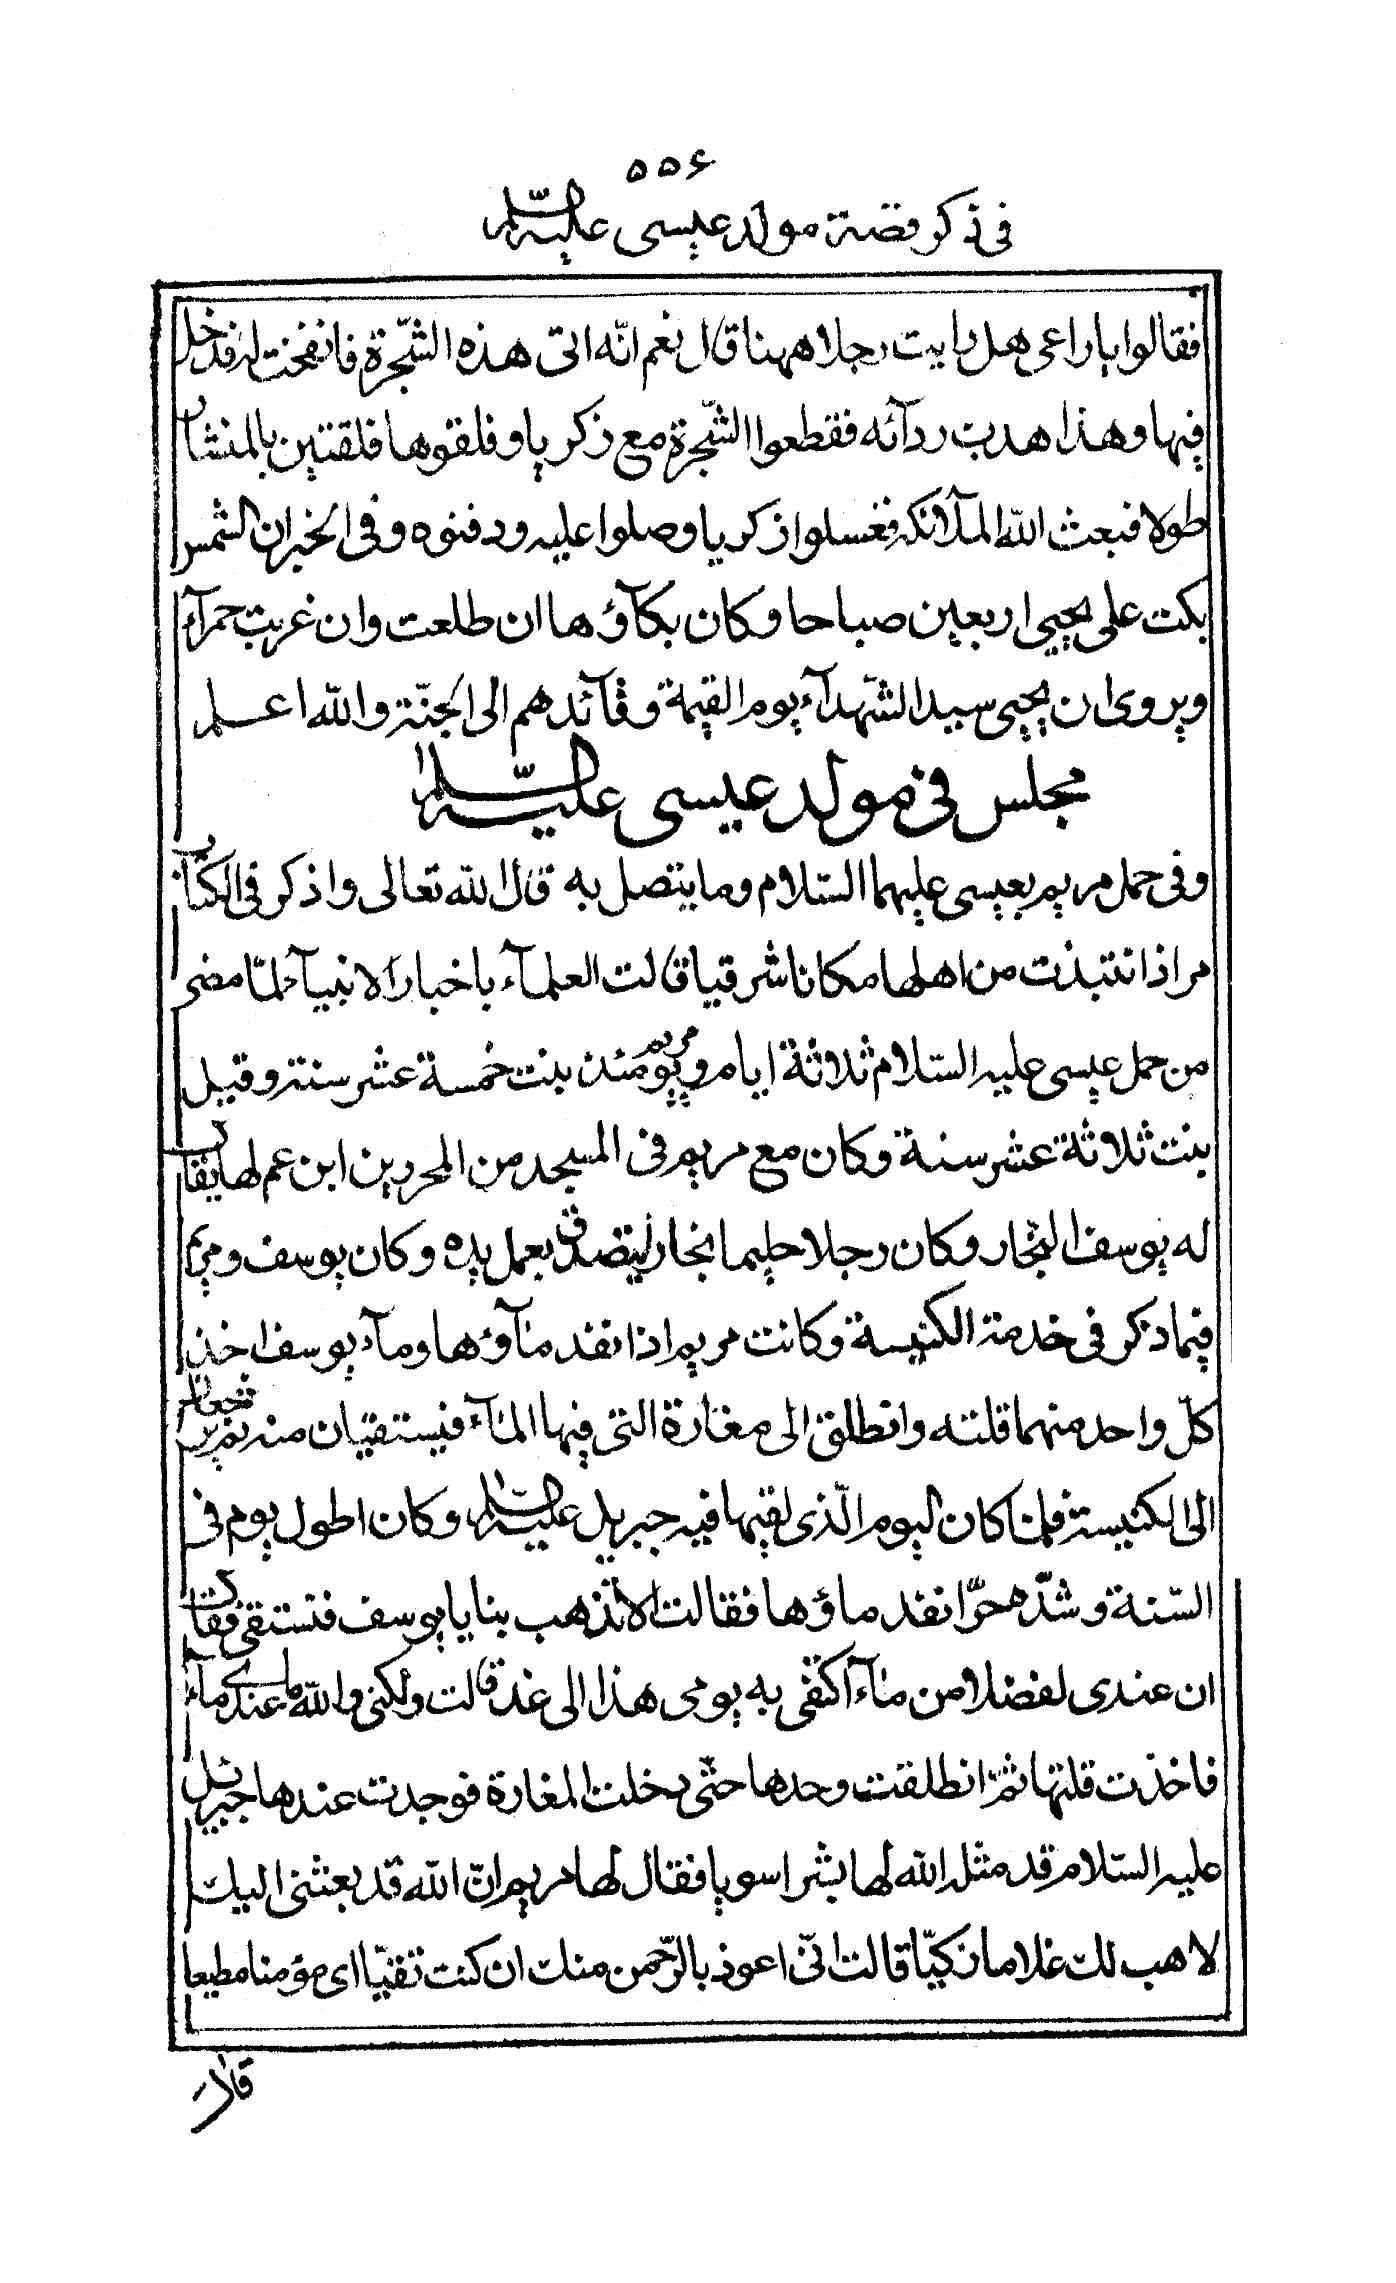 ۵۵۶
فى ذكر قصة مولد عيسى عليه السلم
فقالوا ياراعى هل رايت رجلا ههنا قال نعم انّه اتى هذه الشّجرة فانفخت له فدخل
فيها وهذا هدب ردآئه فقطعوا الشّجرة مع زكريا وفلقوها فلقتين بالمنشار
طولا فبعث الله الملآئكة فغسلوا زكريا وصلوا عليه ودفنوه وفى الخبر ان الشمس
بكت على يحيى اربعين صباحا وكان بكآؤها ان طلعت وان غربت حمرآء
ويروى ان يحيى سيد الشّهدآء يوم القيمة وقآئدهم الى الجنّة والله اعلم
مجلس فى مولد عيسى عليه السّلم
وفى حمل مريم بعيسى عليهما السّلام وما يتصل به قال الله تعالى واذكر فى الكتاب
مر اذ انتبذت من اهلها مكانا شرقيا قالت العلمآء باخبار الانبيآء لمّا مضى
من حمل عيسى عليه السّلام ثلاثة ايام ومريم يومئذ بنت خمسة عشر سنة وقيل
بنت ثلاثة عشر سنة وكان مع مريم فى المسجد من المحررين ابن عم لها يقال
له يوسف النجّار وكان رجلا حليما نجارا يتصدق بعمل يده وكان يوسف ومريم
فيما ذكر فى خدمة الكنيسة وكانت مريم اذا نفد مآؤها ومآء يوسف اخذ
كلّ واحد منهما قلته وانطلق الى مغارة التى فيها المآء فيستقيان منه ثم يرجعان
الى الكنيسة فلما كان اليوم الّذى لقيها فيه جبريل عليه السلم وكان اطول يوم فى
السّنة وشدّه حرّا نفد ماؤها فقالت الا تذهب بنا يا يوسف فنستقى فقال
ان عندى لفضلا من مآء اكتفى به يومى هذا الى غد قالت ولكنى والله ما عندى مآء
فاخذت قلتها ثمّ انطلقت وحدها حتّى دخلت المغارة فوجدت عندها جبريل
عليه السّلام قد مثله الله لها بشرا سويا فقال لها مريم انّ الله قد بعثنى اليك
لاهب لك غلاما زكيّا قالت انّى اعوذ بالرّحمن منك ان كنت تقيّا اى مؤمنا مطيعا
قال